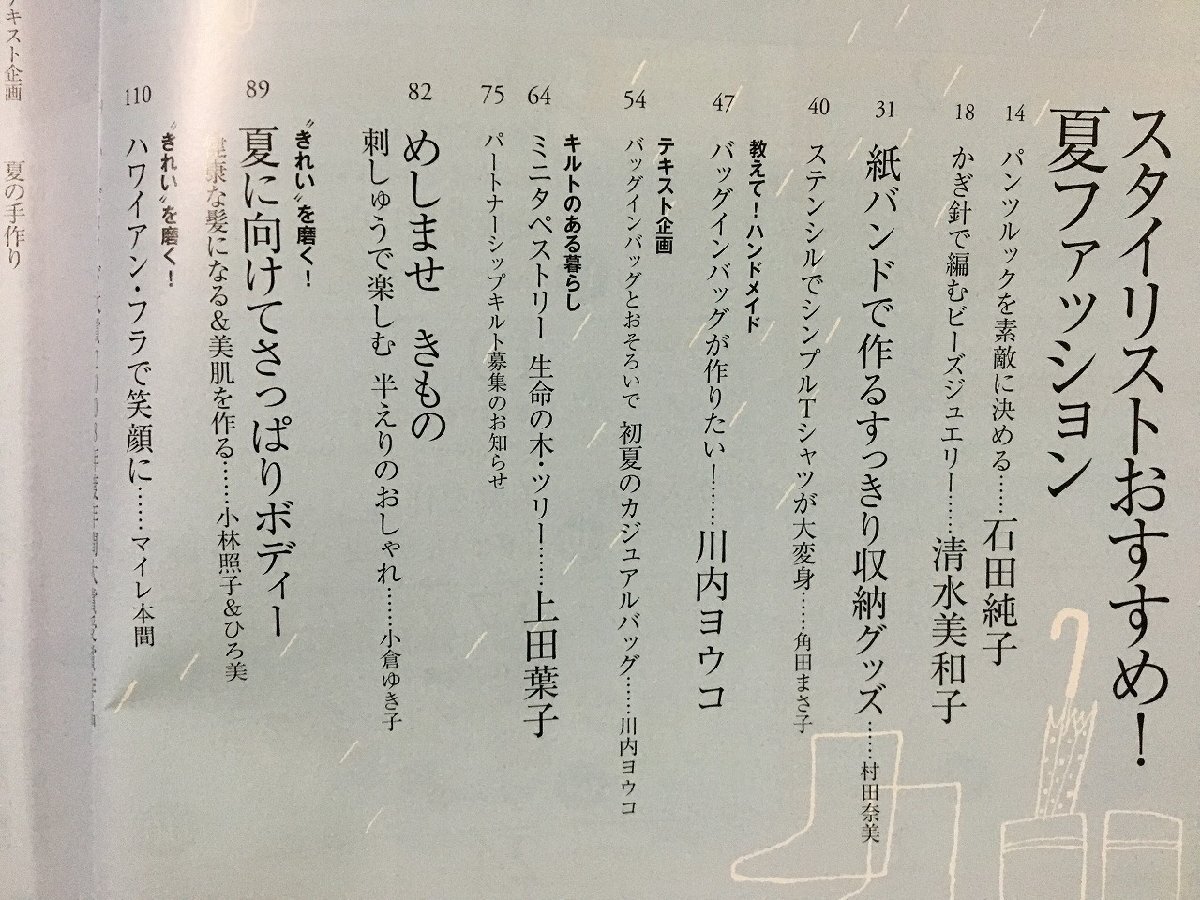 スタイリストおすすめ!
夏ファッション
14 パンツルックを素敵に決める……石田純子
18 かぎ針で編むビーズジュエリー……清水美和子
31 紙バンドで作るすっきり収納グッズ……村田奈美
40 ステンシルでシンプルTシャツが大変身……角田まさ子
教えて!ハンドメイド
47 バッグインバッグが作りたい!……川内ヨウコ
テキスト企画
54 バッグインバッグとおそろいで 初夏のカジュアルバッグ……川内ヨウコ
キルトのある暮らし
64 ミニタペストリー 生命の木・ツリー……上田葉子
75 パートナーシップキルト募集のお知らせ
めしませ きもの
82 刺しゅうで楽しむ 半えりのおしゃれ……小倉ゆき子
“きれい”を磨く!
89 夏に向けてさっぱりボディー
健康な髪になる&美肌を作る……小林照子&ひろ美
“きれい”を磨く!
110 ハワイアン・フラで笑顔に……マイレ本間
キスト企画 夏の手作り